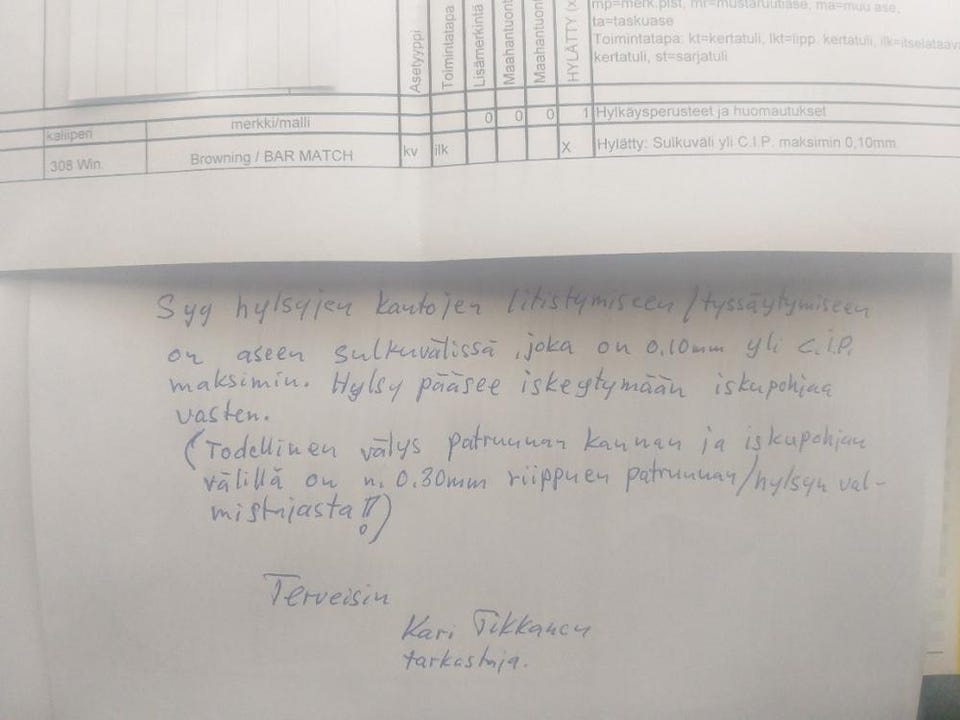 mp=merk.pist, mr=mustaruutiase, ma=muu ase,
ta=taskuase
Toimintatapa: kt=kertatuli, lkt=lipp. kertatuli, ilk=itselataava
kertatuli, st=sarjatuli
Asetyyppi
Toimintatapa
Lisämerkintä
Maahantuont
Maahantuont
HYLÄTTY (x
kaliiperi merkki/malli 0 0 0 1 Hylkäysperusteet ja huomautukset
308 Win. Browning / BAR MATCH kv ilk X Hylätty: Sulkuväli yli C.I.P. maksimin 0,10mm
Syy hylsyjen kantojen litistymiseen/tyssäytymiseen
on aseen sulkuvälissä, joka on 0.10mm yli C.I.P.
maksimin. Hylsy pääsee iskeytymään iskupohjaa
vasten.
(Todellinen välys patruunan kannan ja iskupohjan
välillä on n. 0.30mm riippuen patruunan/hylsyn val-
mistajasta!!)
Terveisin
Kari Tikkanen
tarkastaja.